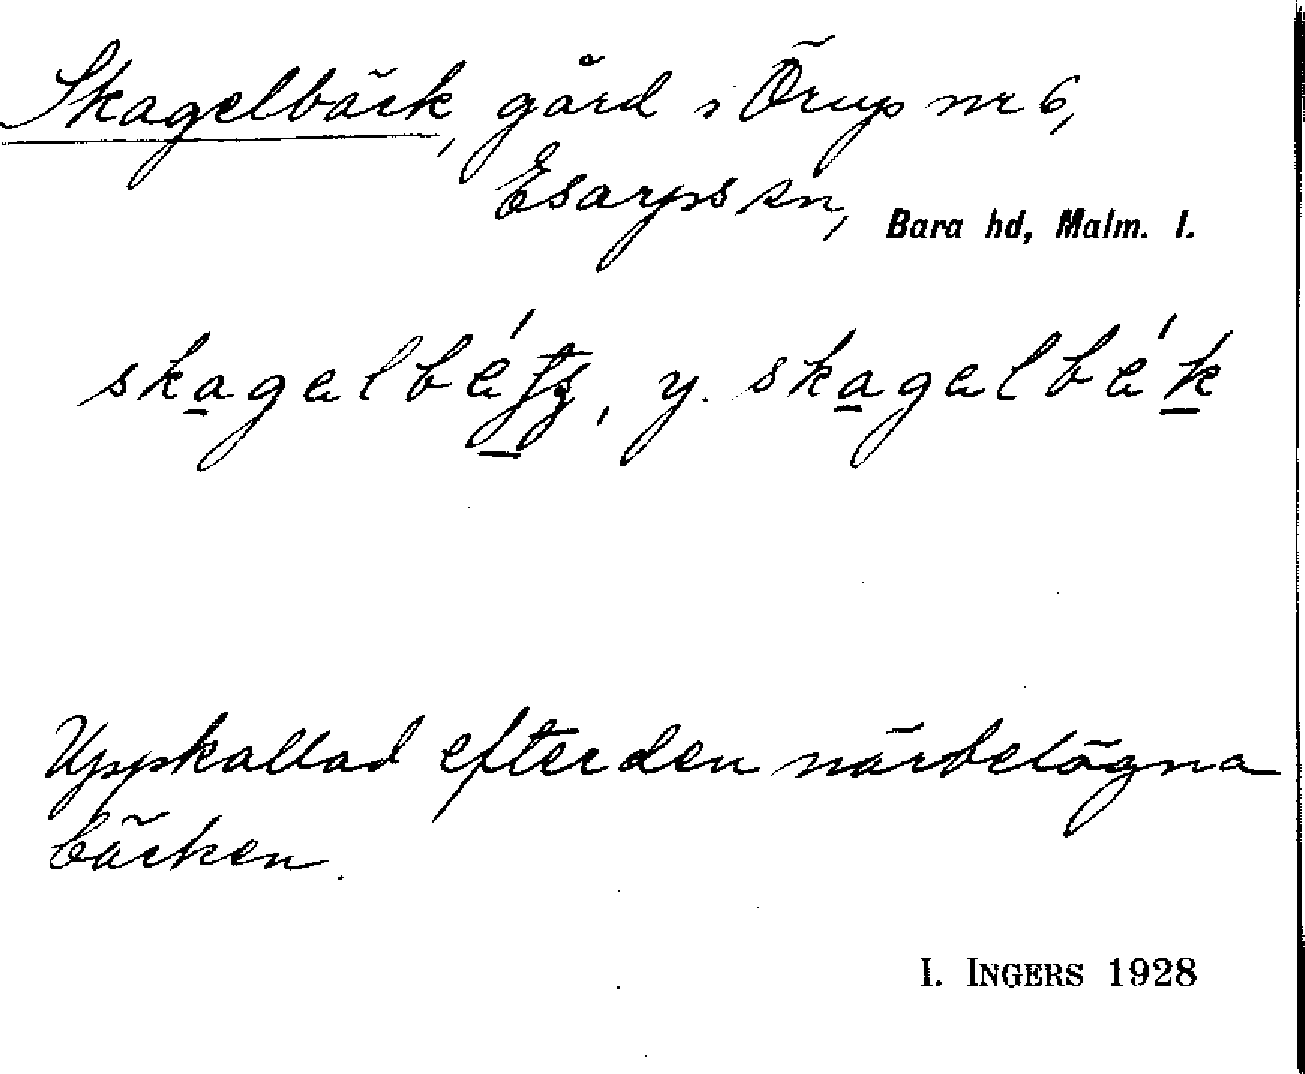 Skagelbäck, gård i Örup nr 6,
Esarps sn, Bara hd, Malm. l.
skagəlbétʒ, y. skagəlbék
Uppkallad efter den närbelägna
bäcken.
I. INGERS 1928